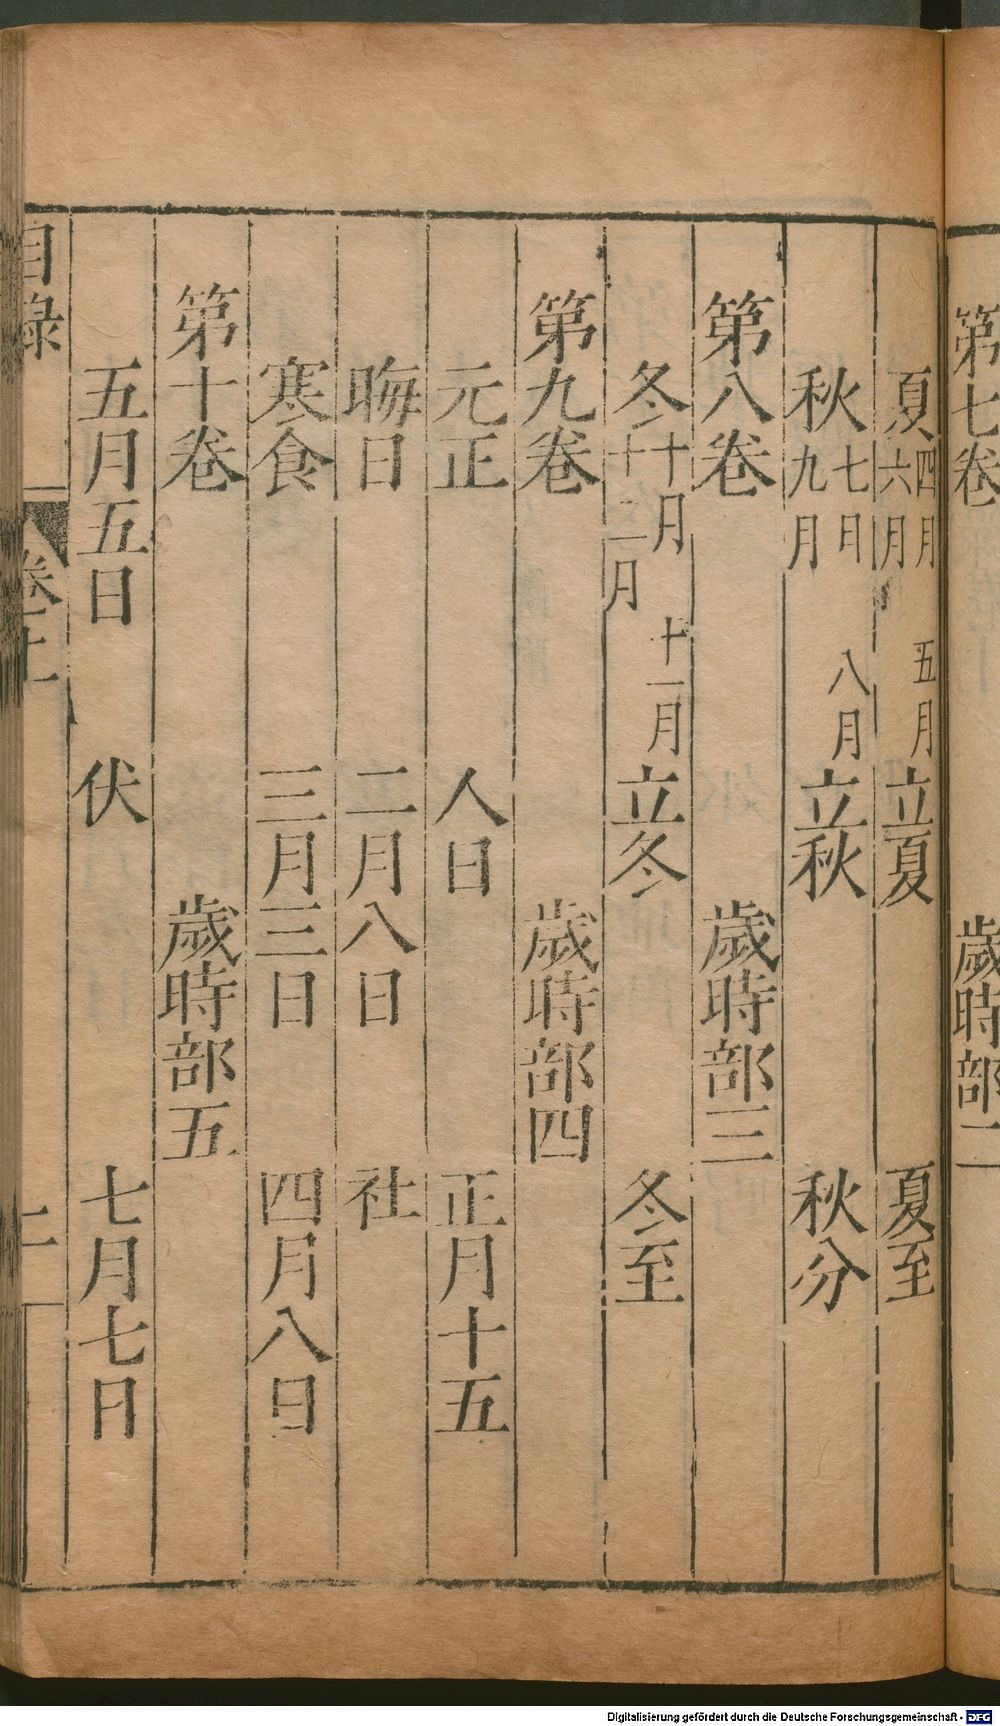 第七卷 歲時部二
夏 四月 五月 六月 立夏 夏至
秋 七日 八月 九月 立秋 秋分
第八卷 歲時部三
冬 十月 十一月 十二月 立冬 冬至
第九卷 歲時部四
元正 人日 正月十五
晦日 二月八日 社
寒食 三月三日 四月八日
第十卷 歲時部五
五月五日 伏 七月七日
目錄 卷 二
Digitalisierung gefördert durch die Deutsche Forschungsgemeinschaft - DFG